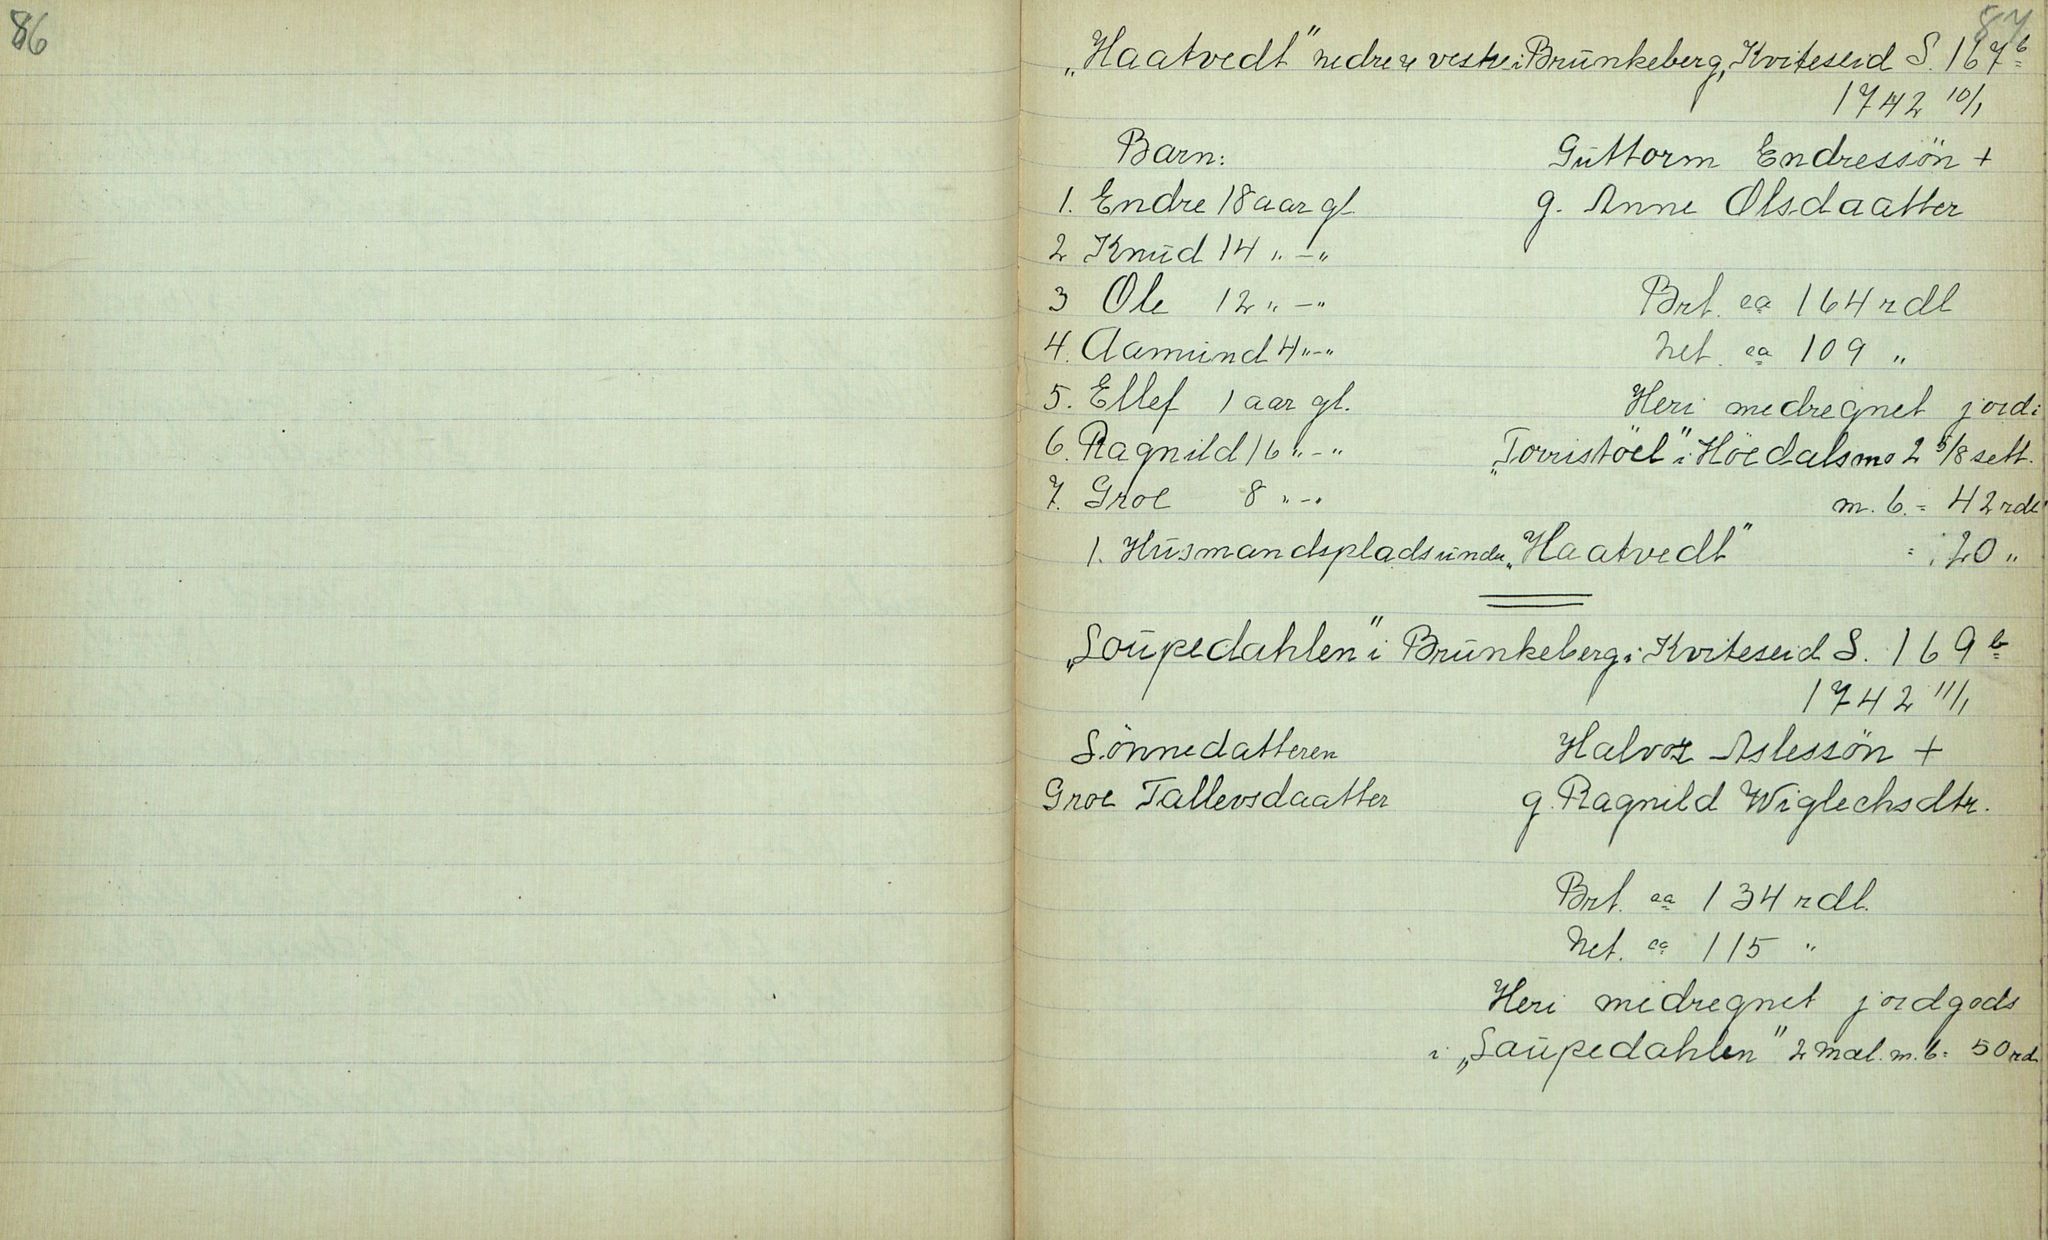 86
87
„Haatvedt" nedre vestre i Brünkeberg, Kviteseid S. 167b
1742 10/1
Barn: Güttorm Endressön +
1. Endre 18 aar gl. g. Anne Olsdaatter
2 Knüd 14 „ – „
3 Ole 12 „ – „ Brt. ca 164 rdl
4. Aamünd 4 „ – „ Net. ca 109 „
5. Ellef 1 aar gl. Heri medregnet jord i
6. Ragnild 16 „ – „ „Torristöel" i Höedalsmo 2 5/8 sett.
7. Groe 8 „ – „ m. b. = 42 rdl
1. Hüsmandsplads ünder „Haatvedt" = 20 „
„Loüpedahlen" i Brünkeberg i Kviteseid S. 169b
1742 11/1
Sönnedatteren Halvor Aslessön +
Groe Tallevsdaatter g. Ragnild Wiglechsdtr.
Brt. ca 134 rdl.
Net. ca 115 „
Heri medregnet jordgods
i „Laüpedahlen" 2 mæl. m. b = 50 rd